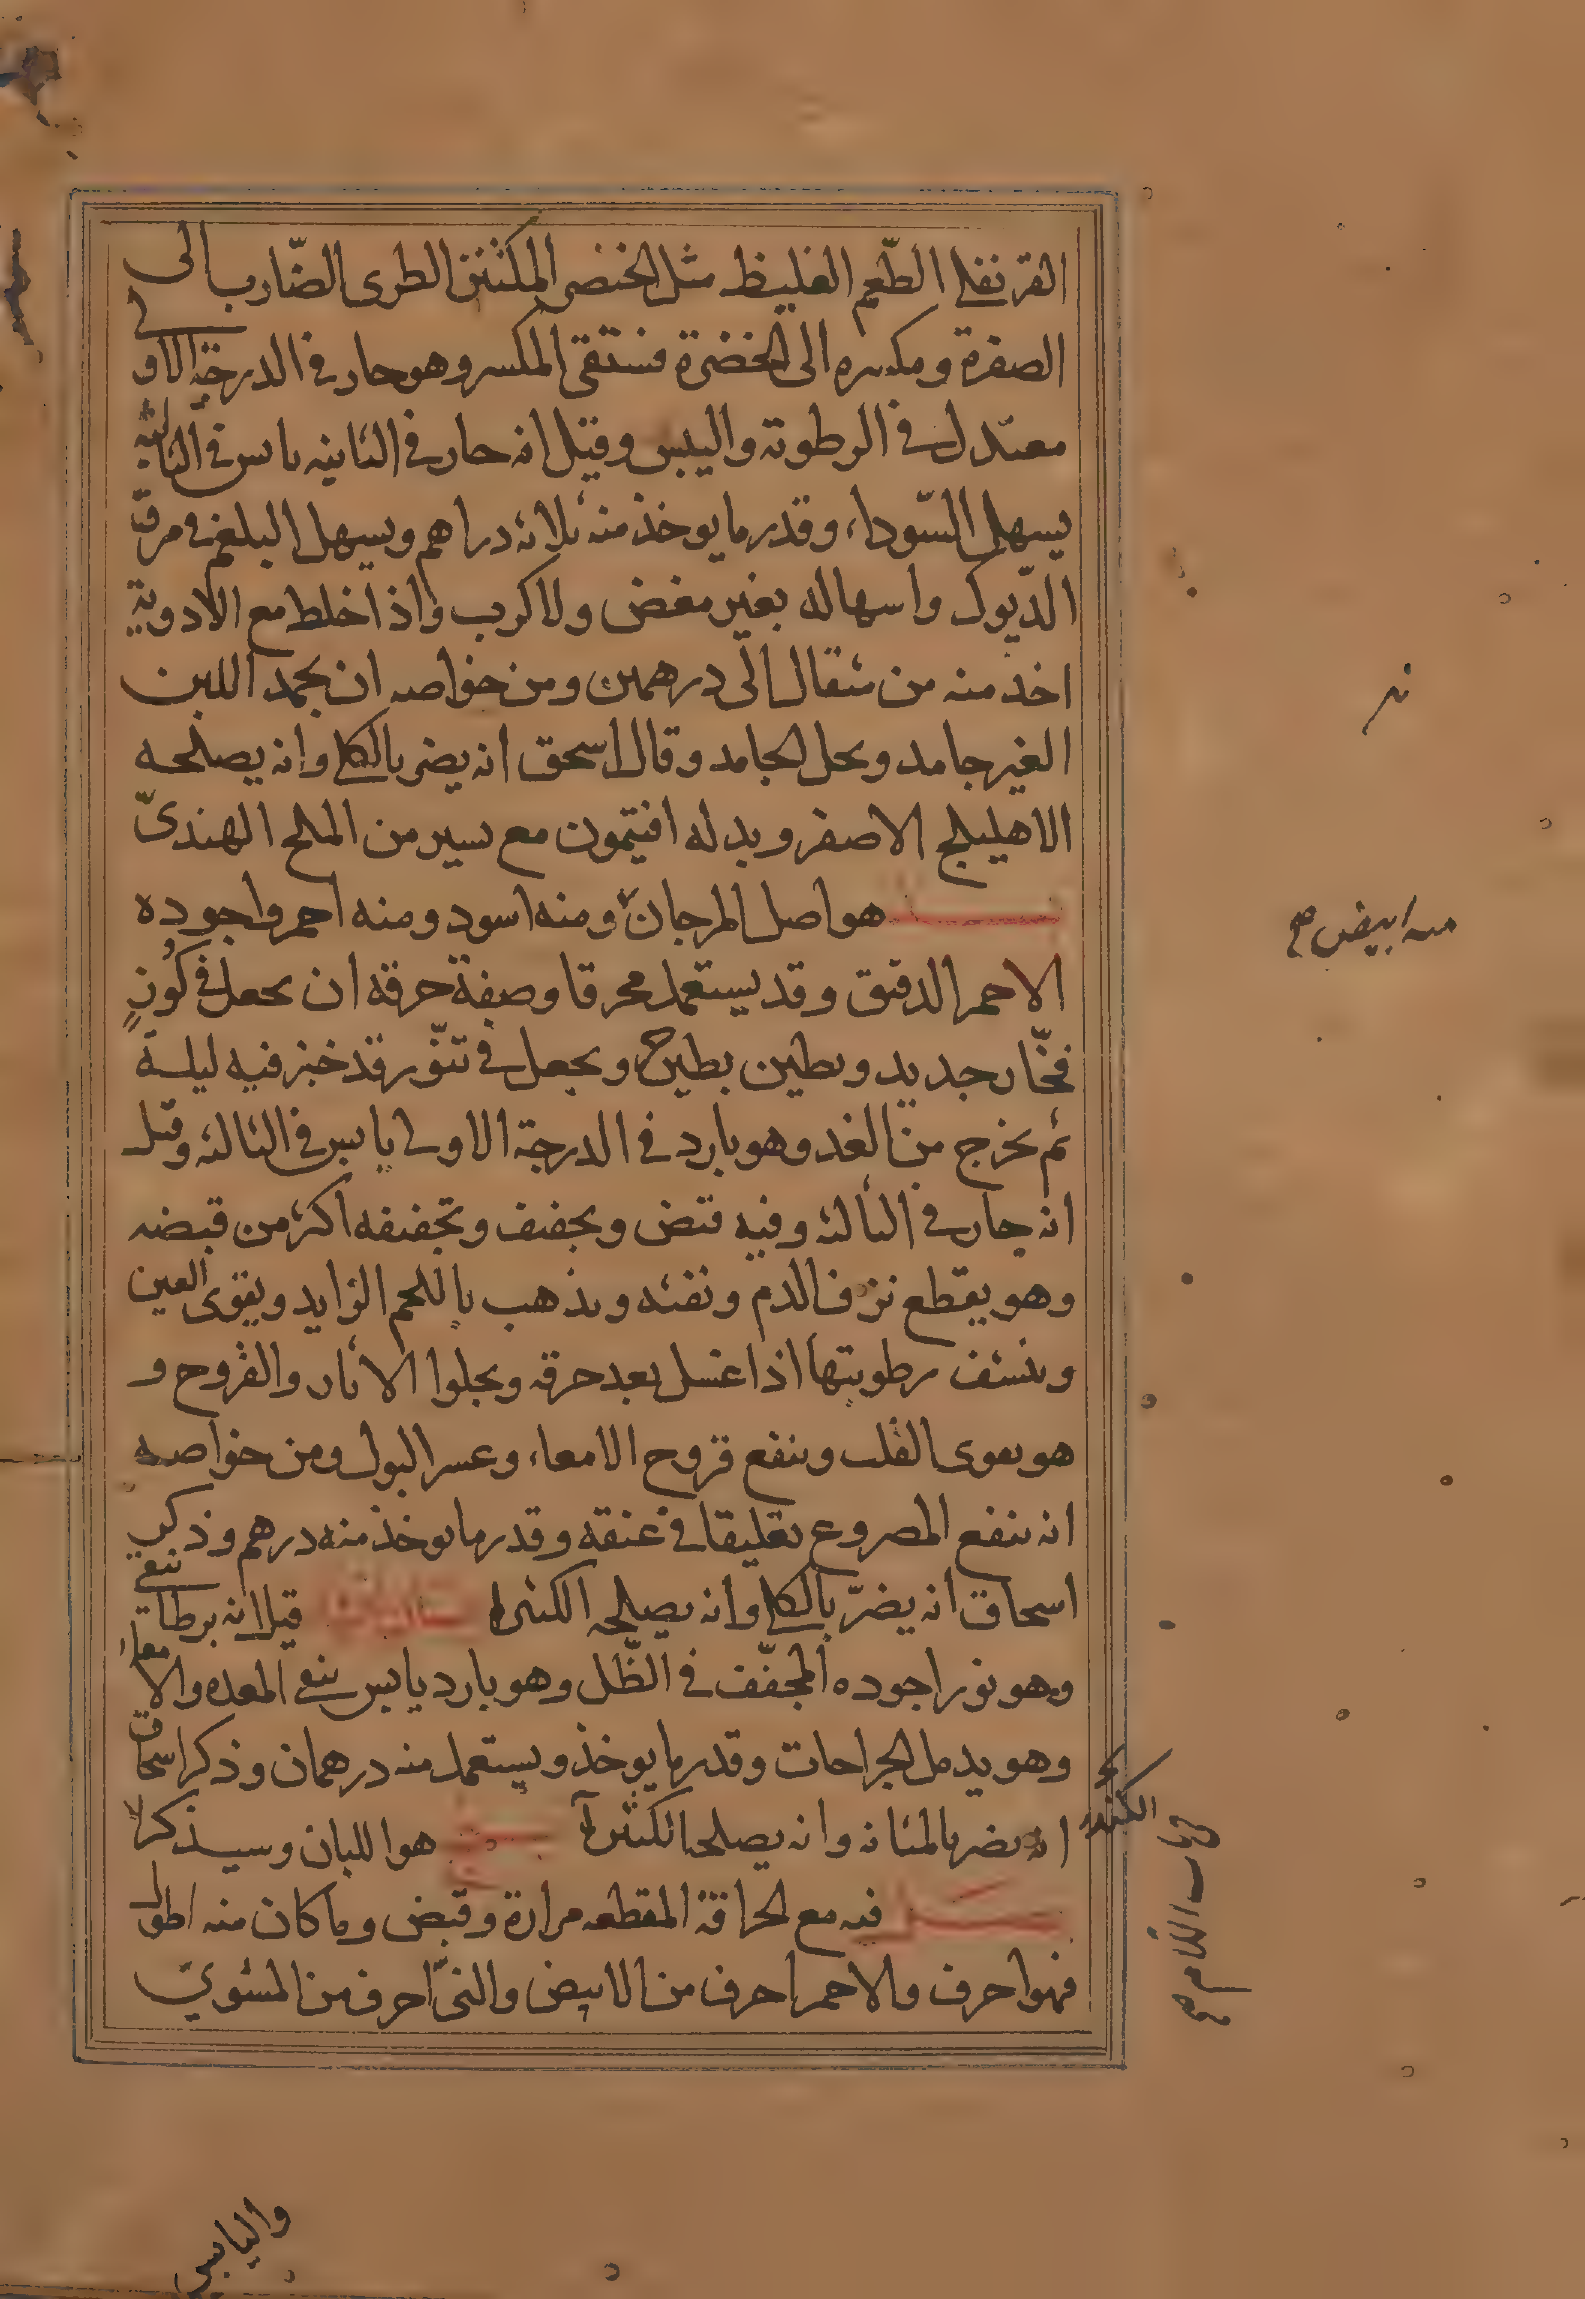 القرنفلي الطّعم الغليظ مثل الخنصر المكتنز الطرى الضّارب الى
الصفرة ومكسره الى الخضرة فستقى المكسر وهو حار فى الدرجة الاولى
معتدل فى الرطوبة واليبس وقيل انه حار فى الثانيه يابس فى الثالثه
يسهل السّوداء وقدر ما يوخذ منه ثلاثه دراهم ويسهل البلغم فى مرق
الدّيوك واسهاله بغير مغض ولا كرب واذا خلط مع الادوية
اخذ منه من مثقال الى درهمين ومن خواصه ان يجمد اللبن
الغير جامد ويحل الجامد وقال اسحق انه يضر بالكلى وانه يصلحه
الاهليلج الاصفر وبدله افتيمون مع يسير من الملح الهندىّ
هو اصل المرجان ومنه اسود ومنه احمر واجوده
منه ابيض صح
الاحمر الدقيق وقد يستعمل محرقا وصفة حرقه ان يجعل فى كُوزٍ
فخّار جديد ويطين بطين ويجعل فى تنّور قد خبز فيه ليلة
ثم يخرج من الغد وهو بارد فى الدرجة الاولى يابس فى الثالثه وقيل
انه حار فى الثالثه وفيه قبض ويجفف وتجفيفه اكثر من قبضه
وهو يقطع نزف الدم ونفثه ويذهب باللحم الزايد ويقوى العين
وينشف رطوبتها اذا غسل بعد حرقه ويجلوا الاثار والقروح و
هو يقوى القلب وينفع قروح الامعاء وعسر البول ومن خواصه
انه ينفع المصروع تعليقا فى عنقه وقدر ما يوخذ منه درهم وذكر
اسحاق انه يضرّ بالكلى وانه يصلحه الكثيرا قيل انه برطانيقى
وهو نور اجوده المجفّف فى الظّل وهو بارد يابس ينفع المعده والامعاء
وهو يدمل الجراحات وقدر ما يوخذ ويستعمل منه درهمان وذكر اسحاق
انه يضر بالمثانه وانه يصلحه الكثيرآ هو اللبان وسيذكر
الكندر فى باب اللام صح
فيه مع الحرافة المقطعه مرارة وقبض وما كان منه اطول
فهو احرف والاحمر احرف من الابيض والنىّ احرف من المشوي
واليابس